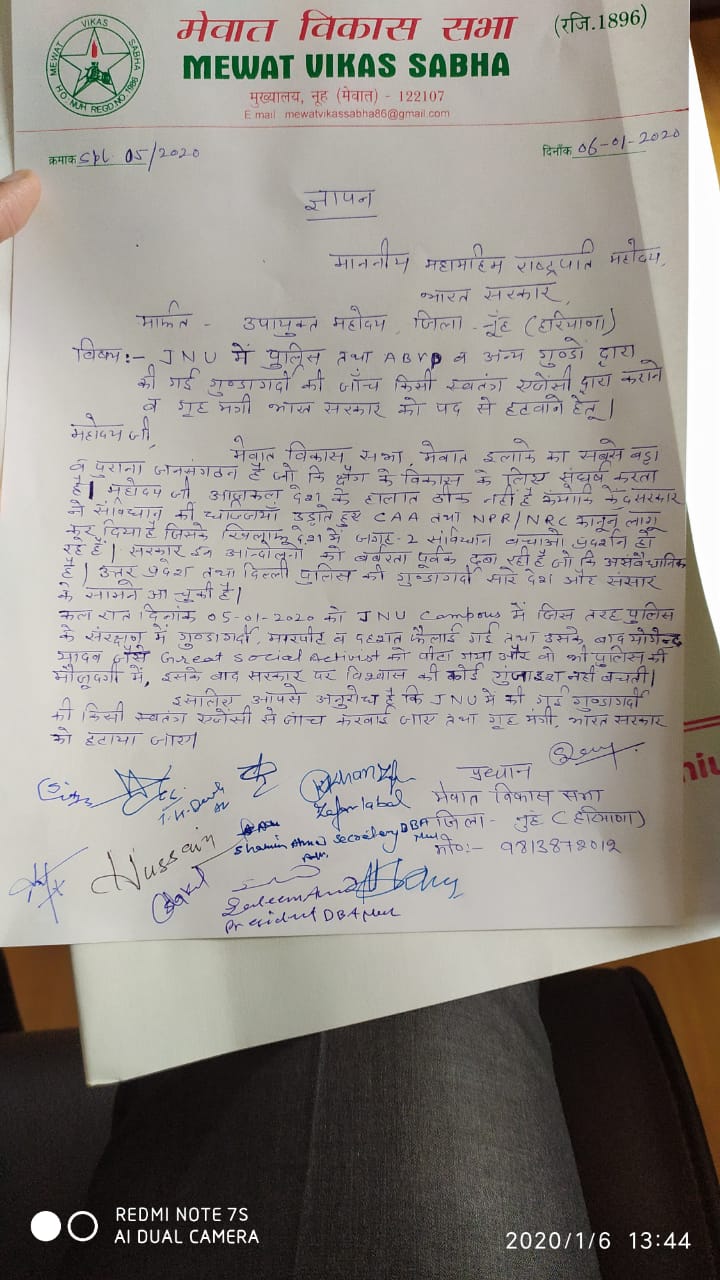 मेवात विकास सभा
(रजि.1896)
MEWAT VIKAS SABHA
मुख्यालय, नूह (मेवात) - 122107
E mail mewatvikassabha86@gmail.com
MEWAT VIKAS SABHA
H.O. NUH REGD.NO 1986
क्रमांक Spl. 05/2020
दिनाँक 06-01-2020
ज्ञापन
माननीय महामहिम राष्ट्रपति महोदय,
भारत सरकार,
मार्फत - उपायुक्त महोदय, जिला - नूँह (हरियाणा)
विषय:- JNU में पुलिस तथा ABVP व अन्य गुण्डों द्वारा
की गई गुण्डागर्दी की जाँच किसी स्वतंत्र एजेंसी द्वारा कराने
व गृह मंत्री भारत सरकार को पद से हटवाने हेतू।
महोदय जी,
मेवात विकास सभा, मेवात इलाके का सबसे बड़ा
व पुराना जनसंगठन है जो कि क्षेत्र के विकास के लिए संघर्ष करता
है। महोदय जी आजकल देश के हालात ठीक नहीं है क्योंकि केंद्र सरकार
ने संविधान की धज्जियाँ उड़ाते हुए CAA तथा NPR/NRC कानून लागू
कर दिया है जिसके खिलाफ देश में जगह-2 संविधान बचाओ प्रदर्शन हो
रहे हैं। सरकार इन आन्दोलनों को बर्बरता पूर्वक दबा रही है जो कि असंवैधानिक
है। उत्तर प्रदेश तथा दिल्ली पुलिस की गुण्डागर्दी सारे देश और संसार
के सामने आ चुकी है।
कल रात दिनांक 05-01-2020 को JNU Campus में जिस तरह पुलिस
के संरक्षण में गुण्डागर्दी, मारपीट व दहशत फैलाई गई तथा उसके बाद योगेन्द्र
यादव जैसे Great Social Activist को पीटा गया और वो भी पुलिस की
मौजूदगी में, इसके बाद सरकार पर विश्वास की कोई गुंजाइश नहीं बचती।
इसलिए आपसे अनुरोध है कि JNU में की गई गुण्डागर्दी
की किसी स्वतंत्र एजेंसी से जांच करवाई जाए तथा गृह मंत्री, भारत सरकार
को हटाया जाए।
प्रधान
मेवात विकास सभा
जिला - नूह (हरियाणा)
मो०:- 9813872012
Zafar Iqbal
Hussain
Secretary DBA
President DBA
REDMI NOTE 7S
AI DUAL CAMERA
2020/1/6 13:44